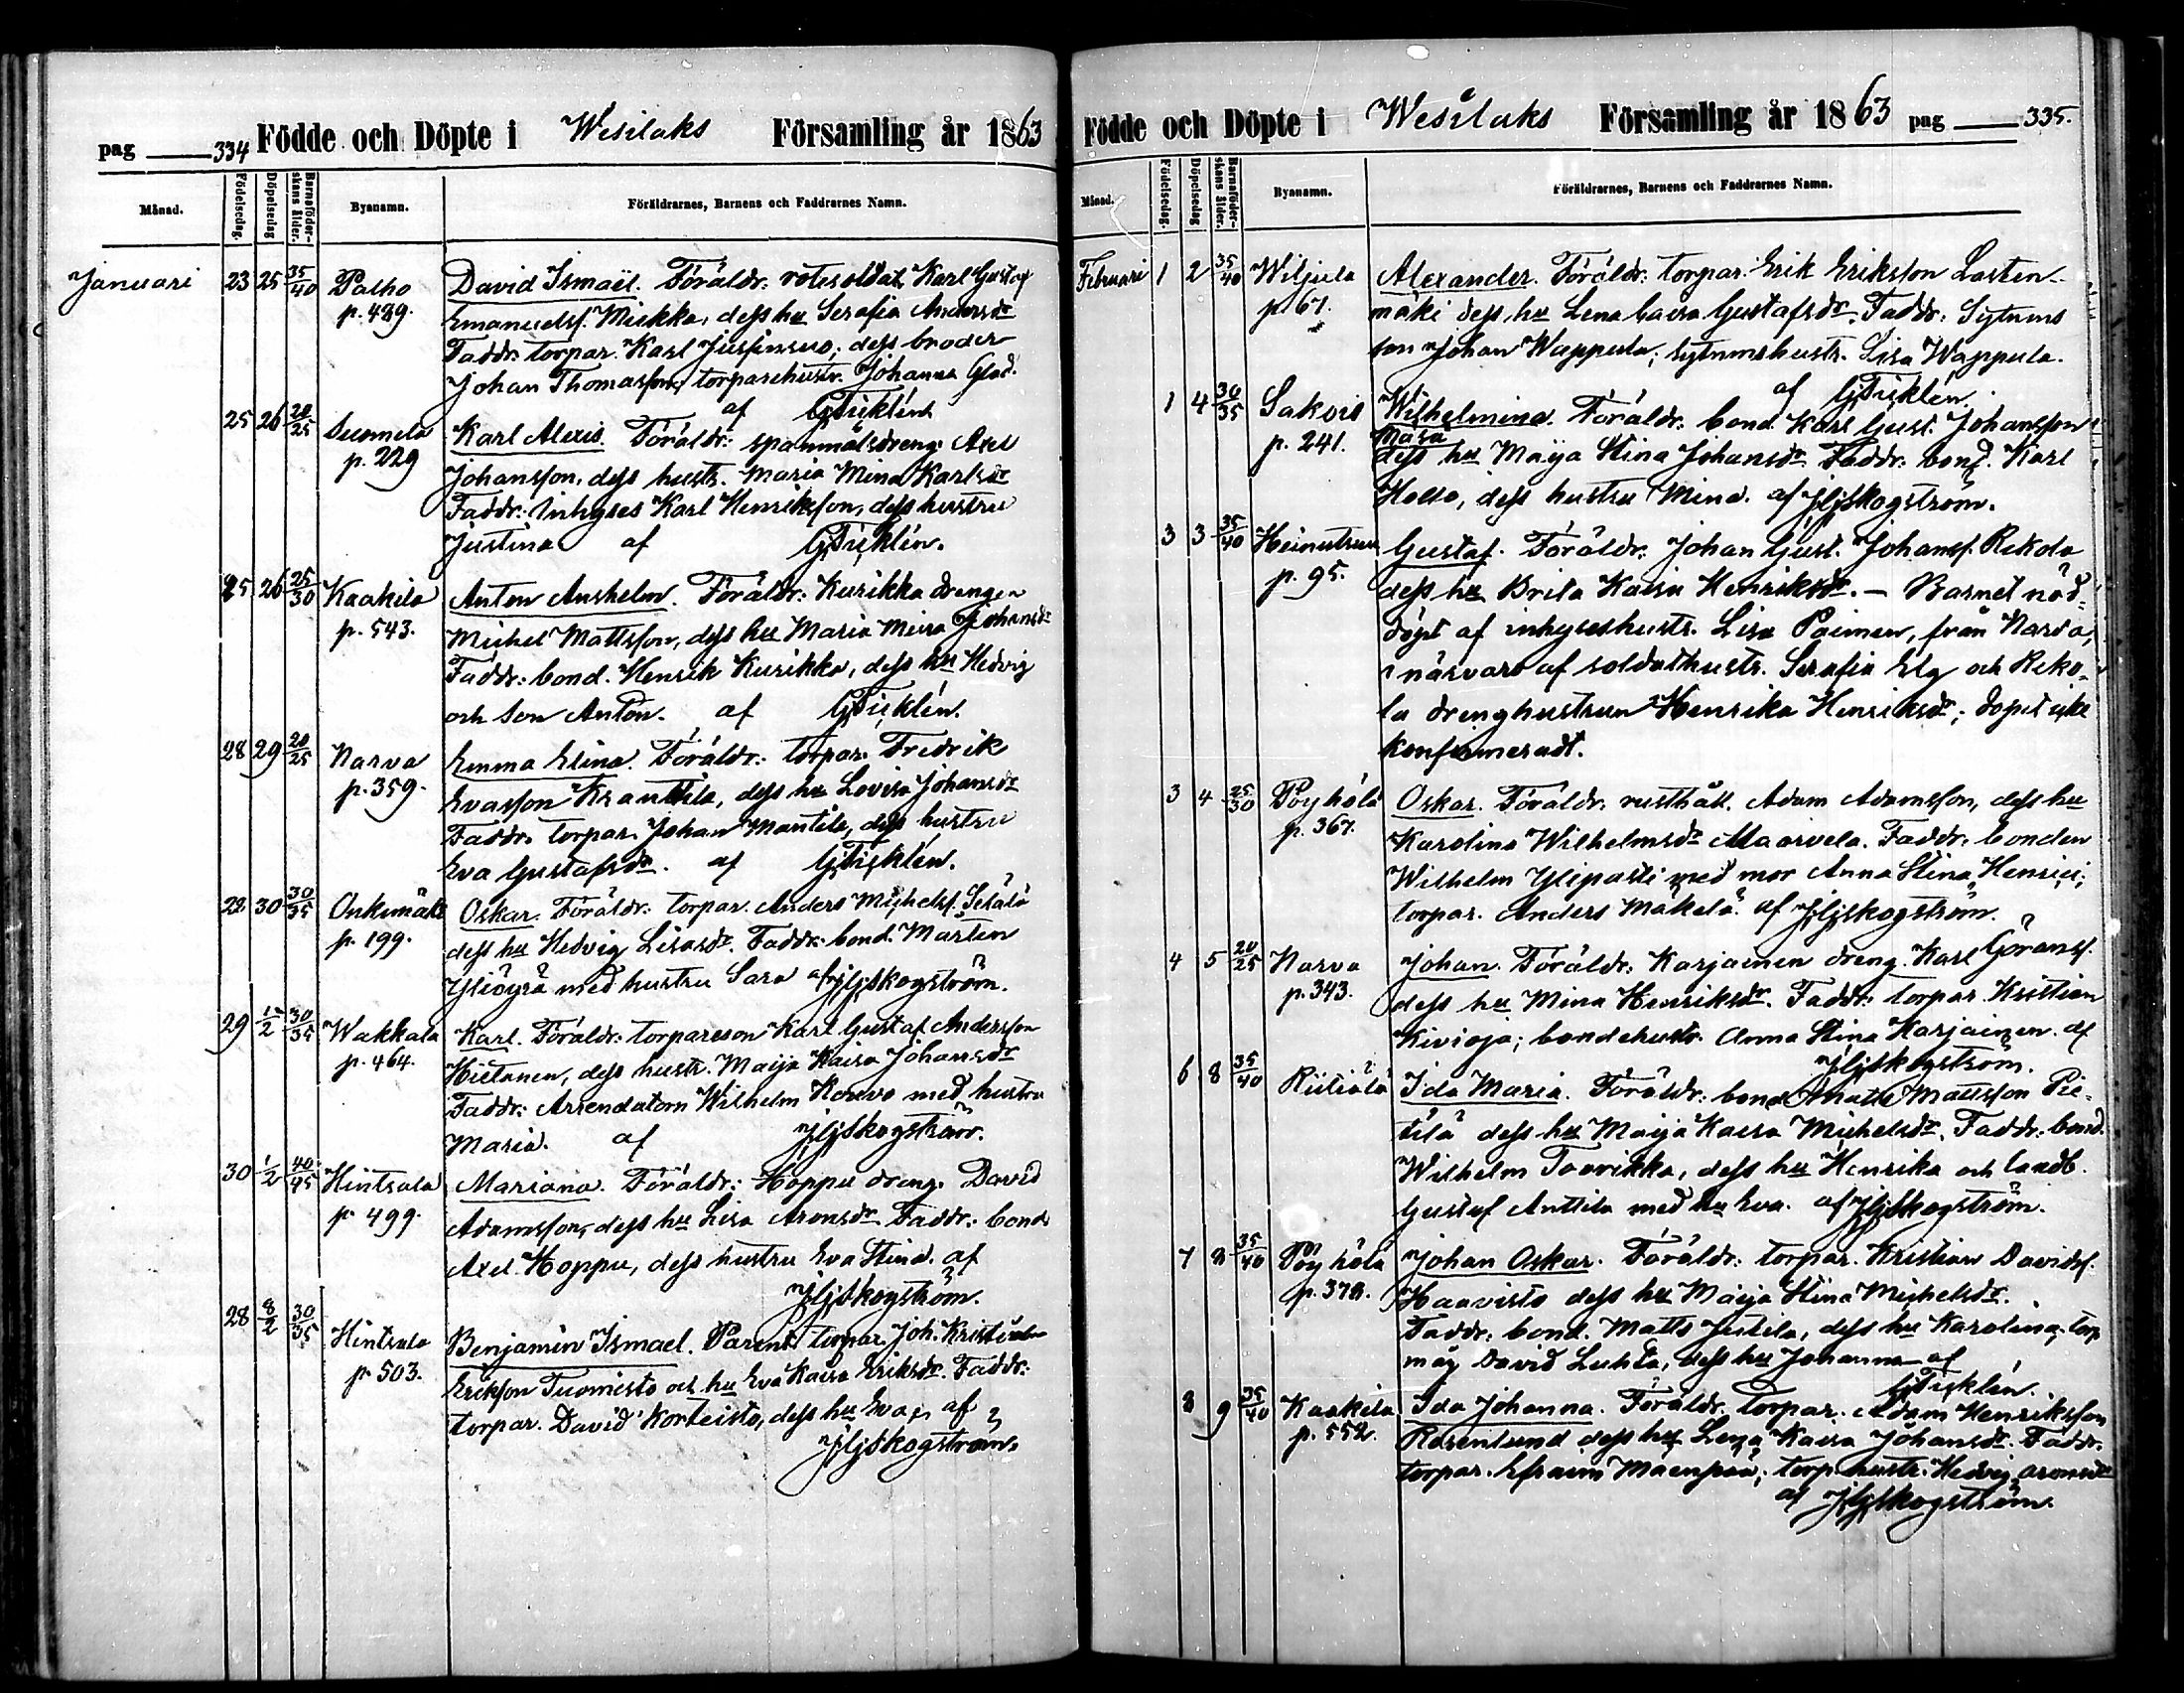 pag 334 Födde och Döpte i Wesilaks Församling år 1863
Månad. Födelsedag. Döpelsedag Barnaföderskans ålder. Byanamn. Föräldrarnes, Barnens och Faddrarnes Namn.
Januari 23 25 35/40 Palho David Ismaël. Föräldr. rotesoldat Karl Gustaf
p. 489. Emanuelsf. Miekka, dess hu Serafia Andersdr
Faddr. torpar. Karl Jussinsuo; dess broder
Johan Thomasson, torparehustr. Johanna Glad.
af GTicklén.
25 26 20/25 Suomela Karl Alexis. Föräldr: spanmålsdreng. Axel
p. 229 Johansson, dess hustr. Maria Mina Karlsdr
Faddr: Inhyses Karl Henriksson, dess hustru
Justina af GTicklén.
25 26 25/30 Kaakila Anton Anshelm. Föräldr: Kurikka drengen
p. 543. Michel Mattsson, dess hu Maria Johansdr
Faddr: bond. Henrik Kurikka, dess hu Hedvig
och son Anton. af GTicklén.
28 29 20/25 Narva Emma Elina. Föräldr: torpar. Fredrik
p. 359. Evasson Kranttila, dess hu Lovisa Johansdr
Faddr. torpar. Johan Mantila, dess hustru
Eva Gustafsdr. af GTicklén.
22 30 30/35 Onkemäki Oskar. Föräldr: torpar. Anders Michelsf. Setälä
p. 199. dess hu Hedvig Lisasdr. Faddr: bond. Mårten
Yliöyrä med hustru Sara af JHSkogström.
29 1/2 30/35 Wakkala Karl. Föräldr: torpareson Karl Gustaf Andersson
p. 464. Hietanen, dess hustr. Maija Kaisa Johansdr
Faddr: Arrendatorn Wilhelm Kouvo med hustru
Maria. af JHSkogström.
30 1/2 40/45 Hintsala Mariana. Föräldr: Hoppu dreng. David
p. 499. Adamsson, dess hu Lisa Aronsdr Faddr: bond
Axel Hoppu, dess hustru Eva Stina. af
JHSkogström.
28 8/2 30/35 Hintsala Benjamin Ismael. Parent. torpar. Joh. Kristian
p. 503. Eriksson Tuomisto och hu Eva Kaisa Eriksdr. Faddr:
torpar. David Korteisto, dess hu Eva, af
JHSkogström.
Födde och Döpte i Wesilaks Församling år 1863 pag 335.
Månad. Födelsedag. Döpelsedag Barnaföderskans ålder. Byanamn. Föräldrarnes, Barnens och Faddrarnes Namn.
Februari 1 2 35/40 Wiljula Alexander. Föräldr: torpar. Erik Eriksson Lasten-
p. 67. mäki dess hu Lena Caisa Gustafsdr. Faddr: Sytnings
son Johan Wappula; sytnmshustr. Lisa Wappula.
af GTicklén.
1 4 30/35 Sakois Wilhelmina. Föräldr. bond. Karl Gust. Johansson
p. 241. dess hu Maija Stina Johansdr Faddr: bond. Karl
dess hustru Mina. af JHSkogström.
3 3 35/40 Heinutsuu Gustaf. Föräldr. Johan Gust. Johansf. Rekola
p. 95. dess hu Brita Kaisa Henriksdr. – Barnet nöd-
döpt af inhyseshustr. Lisa Paimen, från Narva,
i närvaro af soldathustr. Serafia Elg och Reko-
la drenghustrun Henrika Henriksdr; dopet icke
konfirmeradt.
3 4 25/30 Pöyhölä Oskar. Föräldr. rusthåll. Adam Adamsson, dess hu
p. 367. Karolina Wilhelmsdr Maarvela. Faddr. bonden
Wilhelm Ylipasti med mor Anna Stina Henrici;
torpar. Anders Mäkelä. af JHSkogström.
4 5 20/25 Narva Johan. Föräldr: Karjainen dreng. Karl Göransf.
p. 343. dess hu Mina Henriksdr. Faddr: torpar. Kristian
Kivioja; bondehustr. Anna Stina Karjainen. af
JHSkogström.
6 8 35/40 Riitiälä Ida Maria. Föräldr: bond. Matts Mattsson Pie-
tilä dess hu Maija Kaisa Michelsdr. Faddr: bond.
Wilhelm Tovrikka, dess hu Henrika och landb.
Gustaf Anttila med hu Eva. af JHSkogström.
7 8 35/40 Pöyhölä Johan Oskar. Föräldr: torpar. Kristian Davidsf.
p. 378. Haavisto dess hu Maija Stina Michelsdr.
Faddr: bond. Matts Jutila, dess hu Karolina; torp
måg David Luhta, dess hu Johanna af
GTicklén.
8 9 35/40 Kaakila Ida Johanna. Föräldr. torpar. Adam Henriksson
p. 552. Rosenlund dess hu Lena Kaisa Johansdr. Faddr.
torpar. Efraim Mäenpää; torp. hustr. Hedvig Aronsdr
af JHSkogström.